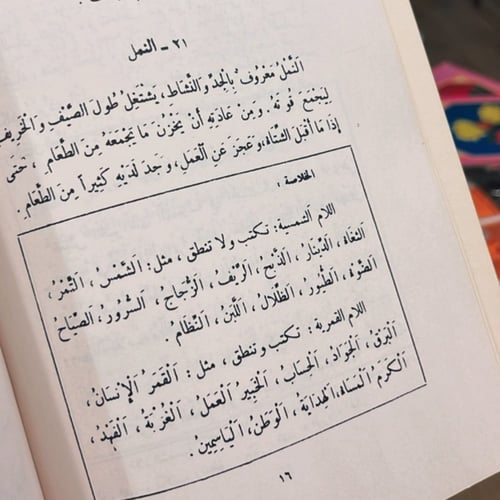 ٢١ - النمل
النَّمْلُ مَعْرُوفٌ بِالْجِدِّ وَالنَّشَاطِ، يَشْتَغِلُ طُولَ الصَّيْفِ وَالْخَرِيفِ
لِيَجْمَعَ قُوتَهُ. وَمِنْ عَادَتِهِ أَنْ يَخْزُنَ مَا يَجْمَعُهُ مِنَ الطَّعَامِ، حَتَّى
إِذَا مَا أَقْبَلَ الشِّتَاءُ، وَعَجَزَ عَنِ الْعَمَلِ، وَجَدَ لَدَيْهِ كَثِيراً مِنَ الطَّعَامِ.
الخلاصة :
اللام الشمسية : تكتب ولا تنطق ، مثل : اَلشَّمْسُ ، اَلتَّمْرُ ،
اَلدِّينَارُ ، اَلذَّبْحُ ، اَلرِّيفُ ، اَلزُّجَاجُ ، اَلسُّرُورُ ، اَلصَّبَاحُ
اَلضَّوْءُ ، اَلطُّيُورُ ، اَلظِّلَالُ ، اَللَّبَنُ ، اَلنِّظَامُ .
اللام القمرية : تكتب وتنطق ، مثل : اَلْقَمَرُ اَلْإِنْسَانُ ،
اَلْبَرْقُ ، اَلْجَوَادُ ، اَلْحِسَابُ ، اَلْخَبِيرُ اَلْعَمَلُ ، اَلْغُرْبَةُ ، اَلْفَهْدُ ،
اَلْكَرَمُ اَلْمَسَاءُ ، اَلْهِدَايَةُ ، اَلْوَطَنُ ، اَلْيَاسَمِينُ .
١٦